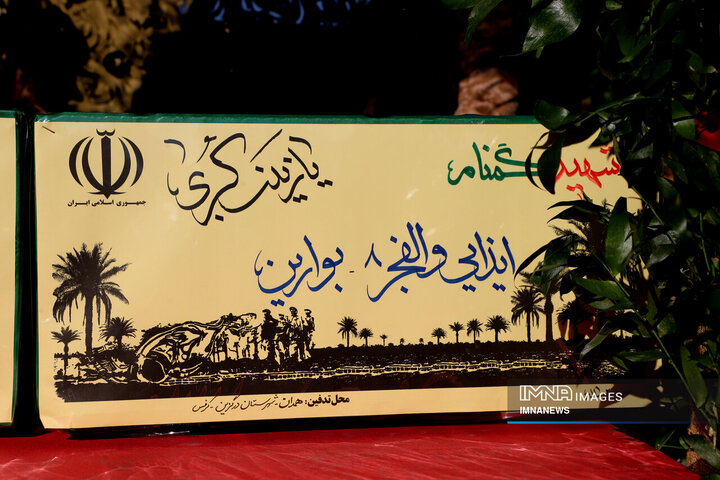 شهید گمنام
یا زینب کبری
جمهوری اسلامی ایران
ایذایی والفجر ۸ - بوارین
محل تدفین: همدان - شهرستان درگزین - کرفس
IMNA IMAGES
IMNANEWS